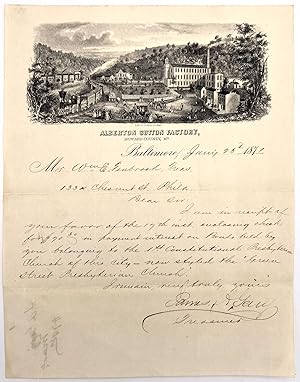 ALBERTON COTTON FACTORY,
HOWARD COUNTY, MD.
Baltimore, 23d 187
Mr. Wm E. Tenbrook, Treas.
1334 Chesnut St. Phila
Dear Sir
I am in receipt of
your favor of the 19th inst enclosing check
for $ in payment interest on Bonds held by
you belonging to the 5th Constitutional Presbyterian
Church of this city - now styled the "Green
Street Presbyterian Church."
I remain, very truly yours
James S.
Treasurer